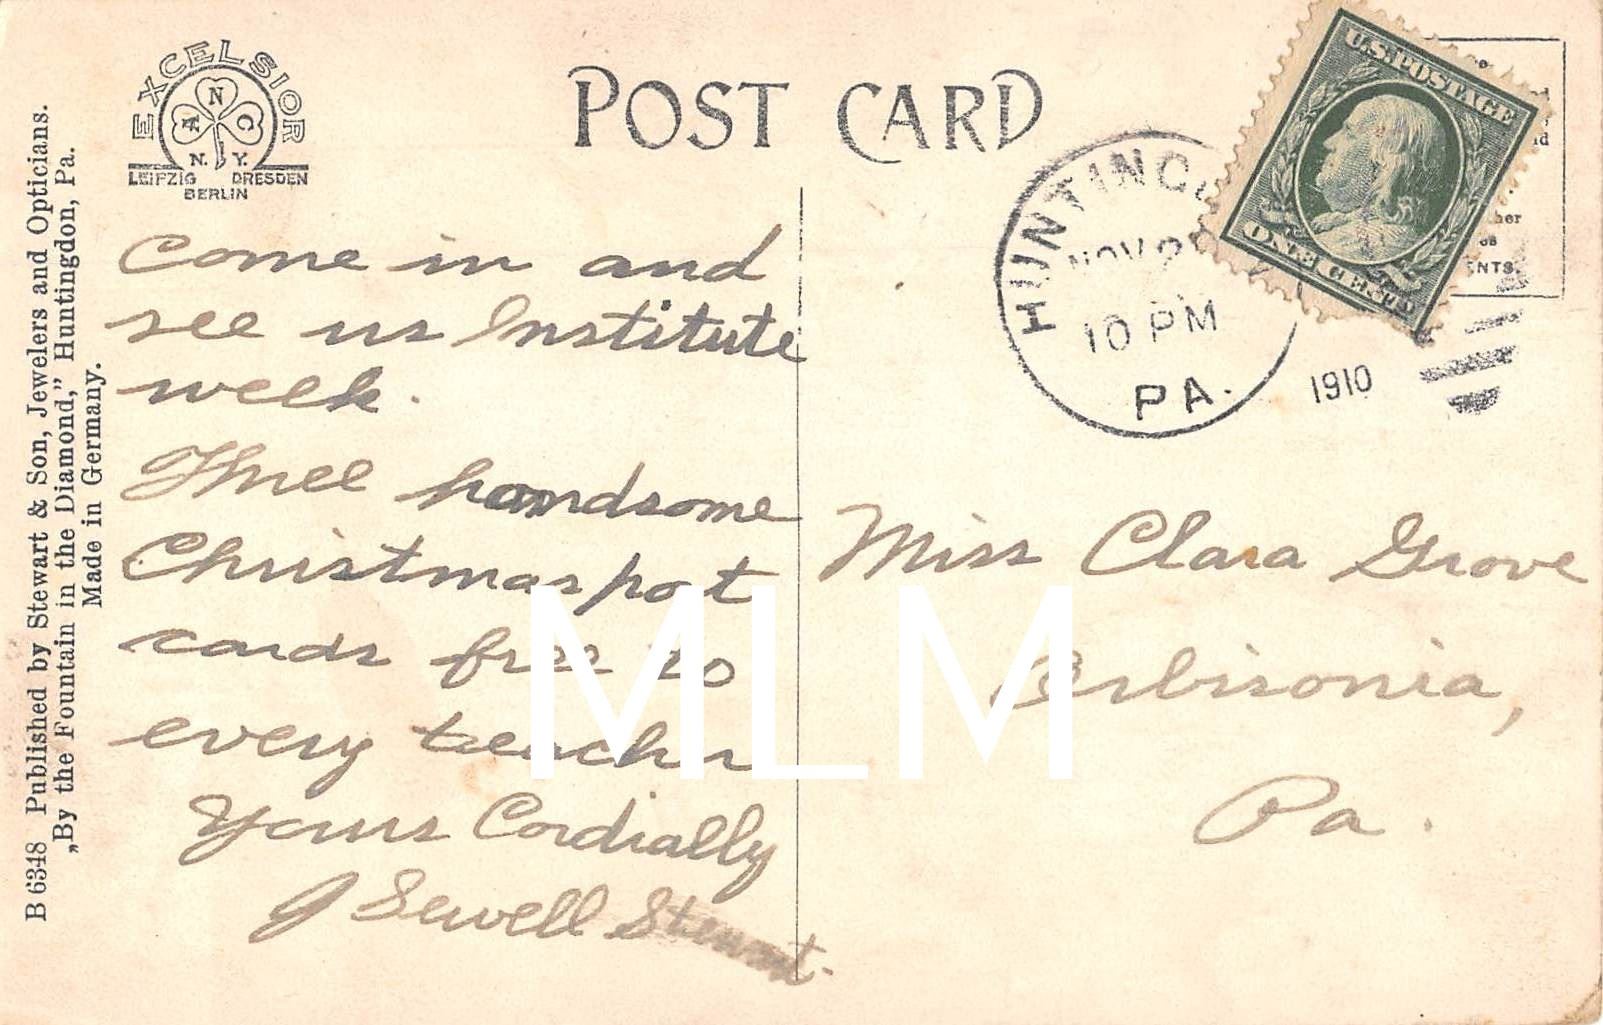 B 6348 Published by Stewart & Son, Jewelers and Opticians.
„By the Fountain in the Diamond," Huntingdon, Pa.
Made in Germany.
EXCELSIOR
A N C
N. Y.
LEIPZIG DRESDEN
BERLIN
POST CARD
HUNTING
NOV 2
10 PM
PA.
1910
U.S. POSTAGE
ONE CENT
NTS.
Come in and
see us Institute
week.
Three handsome
Christmas post
cards free to
every teacher
Yours Cordially
J Sewell Stewart.
Miss Clara Grove
Orbisonia,
Pa.
MLM